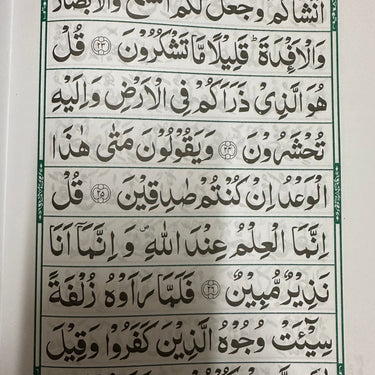 اَنْشَاَكُمْ وَجَعَلَ لَكُمُ السَّمْعَ وَالْاَبْصَارَ
وَالْاَفْـِٕدَةَ ؕ قَلِيْلًا مَّا تَشْكُرُوْنَ ﴿۲۳﴾ قُلْ
هُوَ الَّذِيْ ذَرَاَكُمْ فِي الْاَرْضِ وَاِلَيْهِ
تُحْشَرُوْنَ ﴿۲۴﴾ وَيَقُوْلُوْنَ مَتٰى هٰذَا
الْوَعْدُ اِنْ كُنْتُمْ صٰدِقِيْنَ ﴿۲۵﴾ قُلْ
اِنَّمَا الْعِلْمُ عِنْدَ اللّٰهِ ۪ وَ اِنَّمَاۤ اَنَا
نَذِيْرٌ مُّبِيْنٌ ﴿۲۶﴾ فَلَمَّا رَاَوْهُ زُلْفَةً
سِيْٓـَٔتْ وُجُوْهُ الَّذِيْنَ كَفَرُوْا وَقِيْلَ